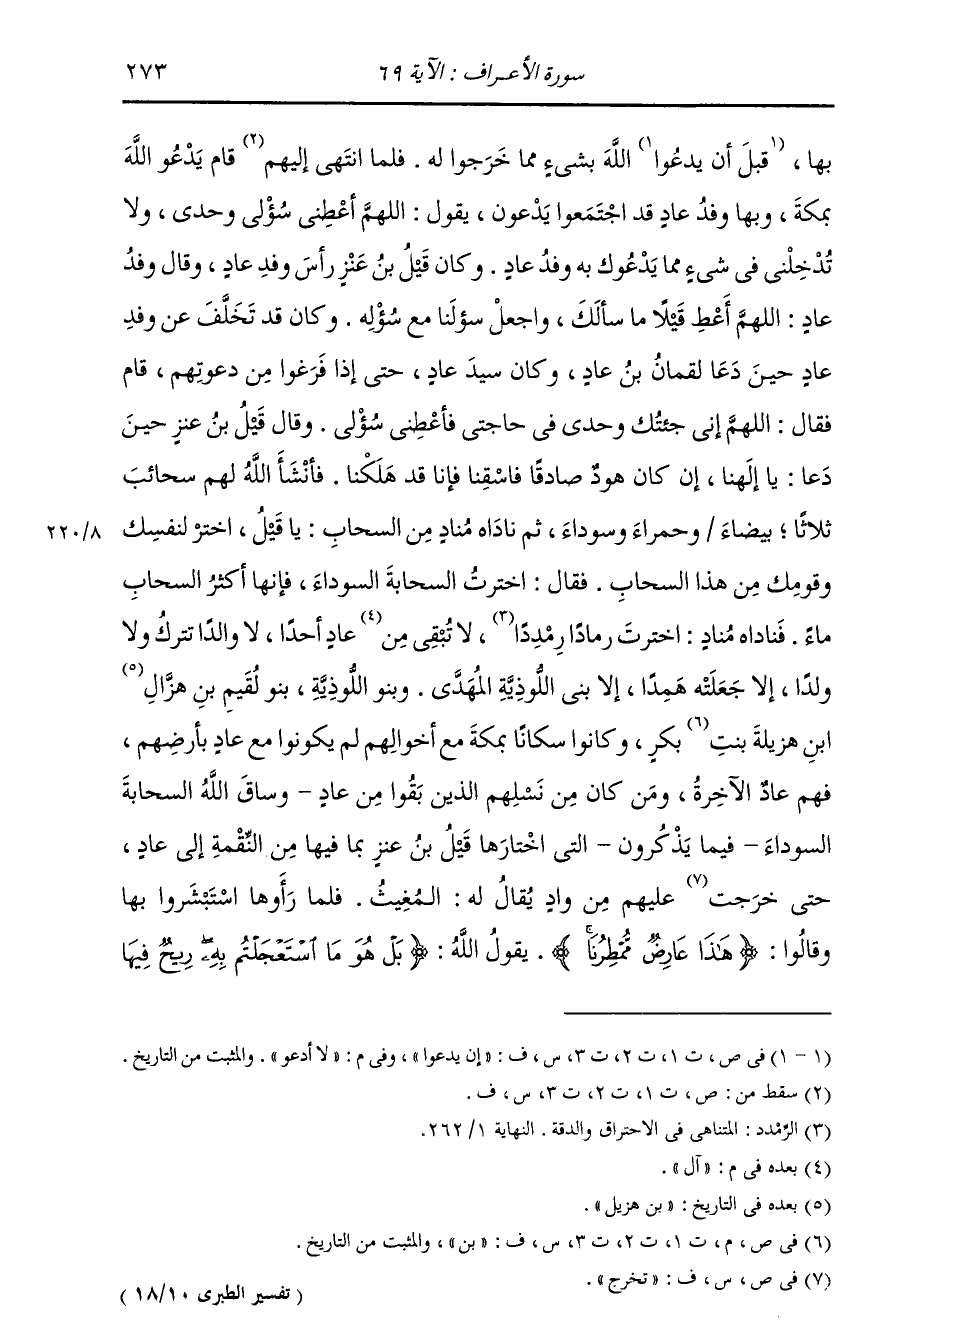 سورة الأعراف : الآية ٦٩ ٢٧٣
بها ، (١قبلَ أن يدعُوا١) اللَّهَ بشىءٍ مما خَرَجوا له . فلما انتَهى إليهم(٢) قام يَدْعُو اللَّهَ
بمكةَ ، وبها وفدُ عادٍ قد اجتَمَعوا يَدْعون ، يقول : اللهمَّ أعْطِنى سُؤْلى وحدى ، ولا
تُدْخِلْنى فى شىءٍ مما يَدْعُوك به وفدُ عادٍ . وكان قَيْلُ بنُ عَنْزٍ رأسَ وفدِ عادٍ ، وقال وفدُ
عادٍ : اللهمَّ أَعْطِ قَيْلًا ما سألَكَ ، واجعلْ سؤلَنا مع سُؤْلِه . وكان قد تَخَلَّفَ عن وفدِ
عادٍ حينَ دَعَا لقمانُ بنُ عادٍ ، وكان سيدَ عادٍ ، حتى إذا فَرَغوا مِن دعوتِهم ، قام
فقال : اللهمَّ إنى جئتُك وحدى فى حاجتى فأعْطِنى سُؤْلى . وقال قَيْلُ بنُ عنزٍ حينَ
دَعا : يا إلَهنا ، إن كان هودٌ صادقًا فاسْقِنا فإنا قد هَلَكْنا . فأنْشَأَ اللَّهُ لهم سحائبَ
ثلاثًا ؛ بيضاءَ / وحمراءَ وسوداءَ ، ثم نادَاه مُنادٍ مِن السحابِ : يا قَيْلُ ، اخترْ لنفسِك ٢٢٠/٨
وقومِك مِن هذا السحابِ . فقال : اخترتُ السحابةَ السوداءَ ، فإنها أكثرُ السحابِ
ماءً . فَناداه مُنادٍ : اخترتَ رمادًا رِمْدِدًا(٣) ، لا تُبْقِى مِن(٤) عادٍ أحدًا ، لا والدًا تتركُ ولا
ولدًا ، إلا جَعَلَتْه هَمِدًا ، إلا بنى اللُّوذِيَّةِ المُهَدَّى . وبنو اللُّوذِيَّةِ ، بنو لُقَيمِ بنِ هزَّالِ(٥)
ابنِ هزيلةَ بنتِ(٦) بكرٍ ، وكانوا سكانًا بمكةَ مع أخوالِهم لم يكونوا مع عادٍ بأرضِهم ،
فهم عادٌ الآخِرةُ ، ومَن كان مِن نَسْلِهم الذين بَقُوا مِن عادٍ - وساقَ اللَّهُ السحابةَ
السوداءَ - فيما يَذْكُرون - التى اختارَها قَيْلُ بنُ عنزٍ بما فيها مِن النِّقْمةِ إلى عادٍ ،
حتى خرَجت(٧) عليهم مِن وادٍ يُقالُ له : المُغِيثُ . فلما رَأَوها اسْتَبْشَروا بها
وقالُوا : ﴿ هَٰذَا عَارِضٌ مُّمْطِرُنَا ﴾ . يقولُ اللَّهُ : ﴿ بَلْ هُوَ مَا ٱسْتَعْجَلْتُم بِهِۦ رِيحٌ فِيهَا
(١ - ١) فى ص ، ت ١، ت ٢، ت ٣، س ، ف : «إن يدعوا» ، وفى م : «لا أدعو» . والمثبت من التاريخ .
(٢) سقط من : ص ، ت ١، ت ٢، ت ٣، س ، ف .
(٣) الرِّمْدد : المتناهى فى الاحتراق والدقة . النهاية ١/ ٢٦٢.
(٤) بعده فى م : «آل» .
(٥) بعده فى التاريخ : «بن هزيل» .
(٦) فى ص ، م ، ت ١، ت ٢، ت ٣، س ، ف : «بن» ، والمثبت من التاريخ .
(٧) فى ص ، س ، ف : «تخرج» .
( تفسير الطبرى ١٨/١٠ )